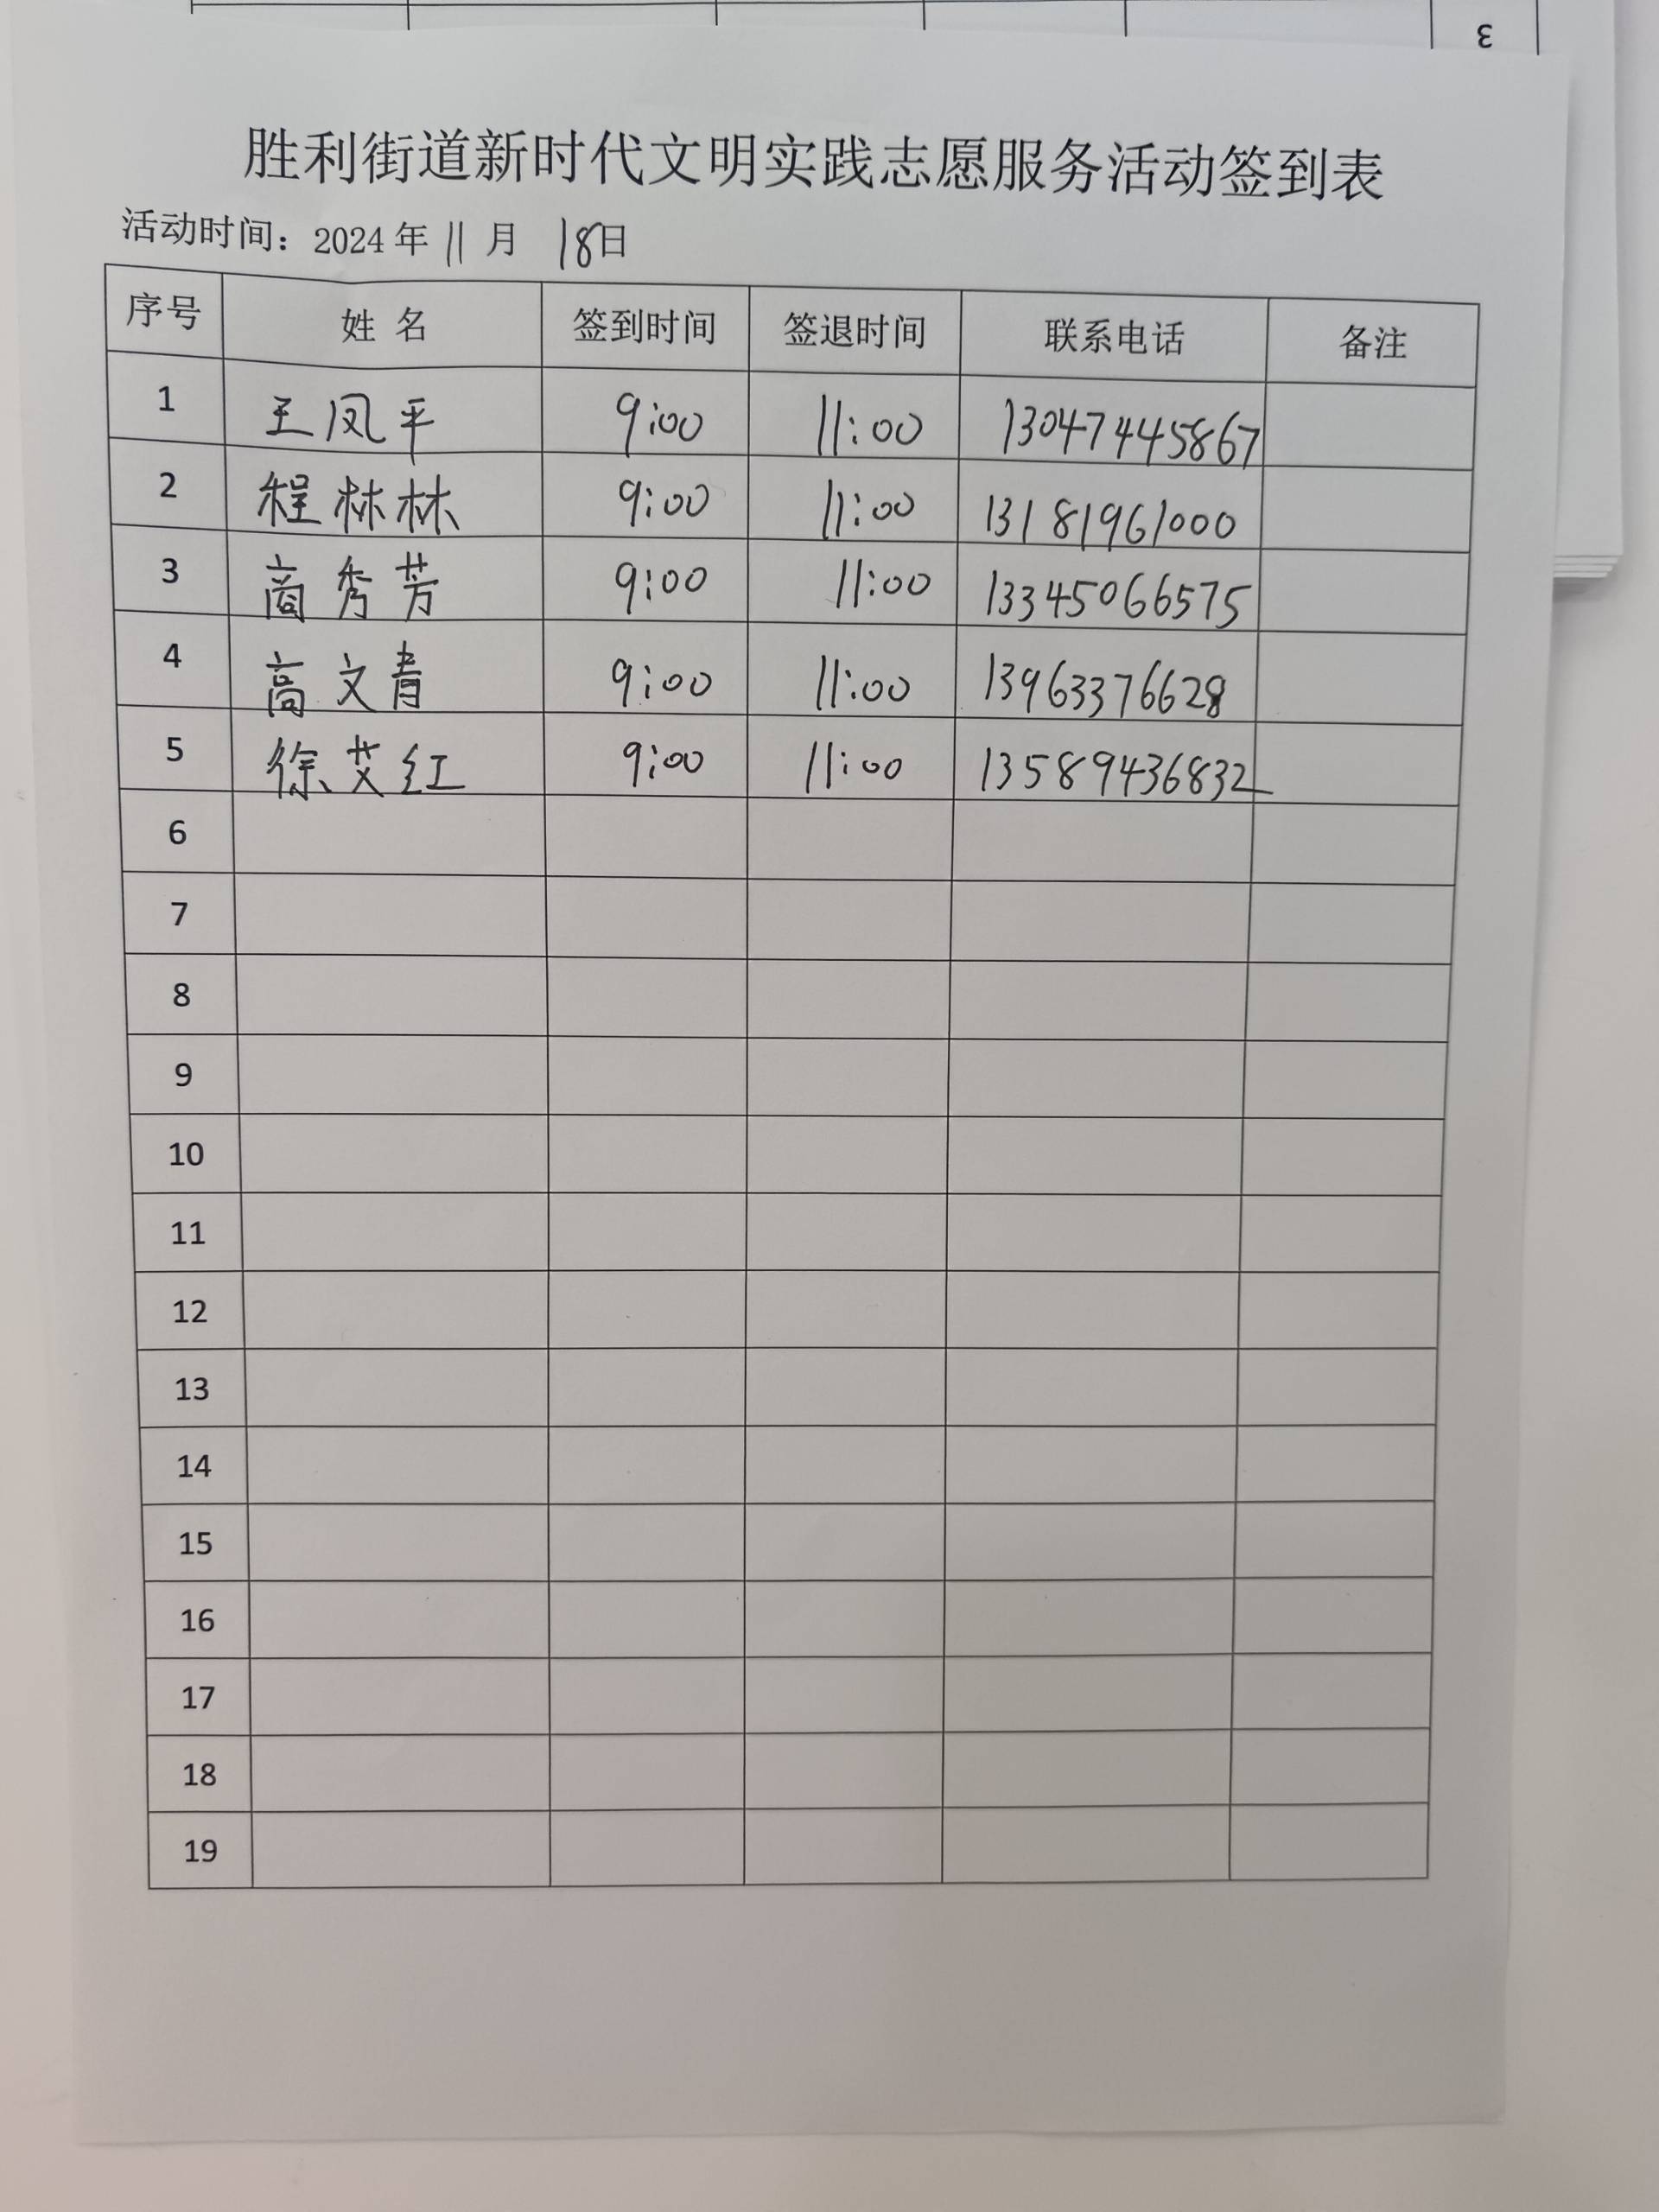 3
胜利街道新时代文明实践志愿服务活动签到表
活动时间：2024 年 11 月 18日
序号 姓 名 签到时间 签退时间 联系电话 备注
1 王凤平 9:00 11:00 13047445867
2 程林林 9:00 11:00 13181961000
3 商秀芳 9:00 11:00 13345066575
4 高文青 9:00 11:00 13963376628
5 徐艾红 9:00 11:00 13589436832
6
7
8
9
10
11
12
13
14
15
16
17
18
19